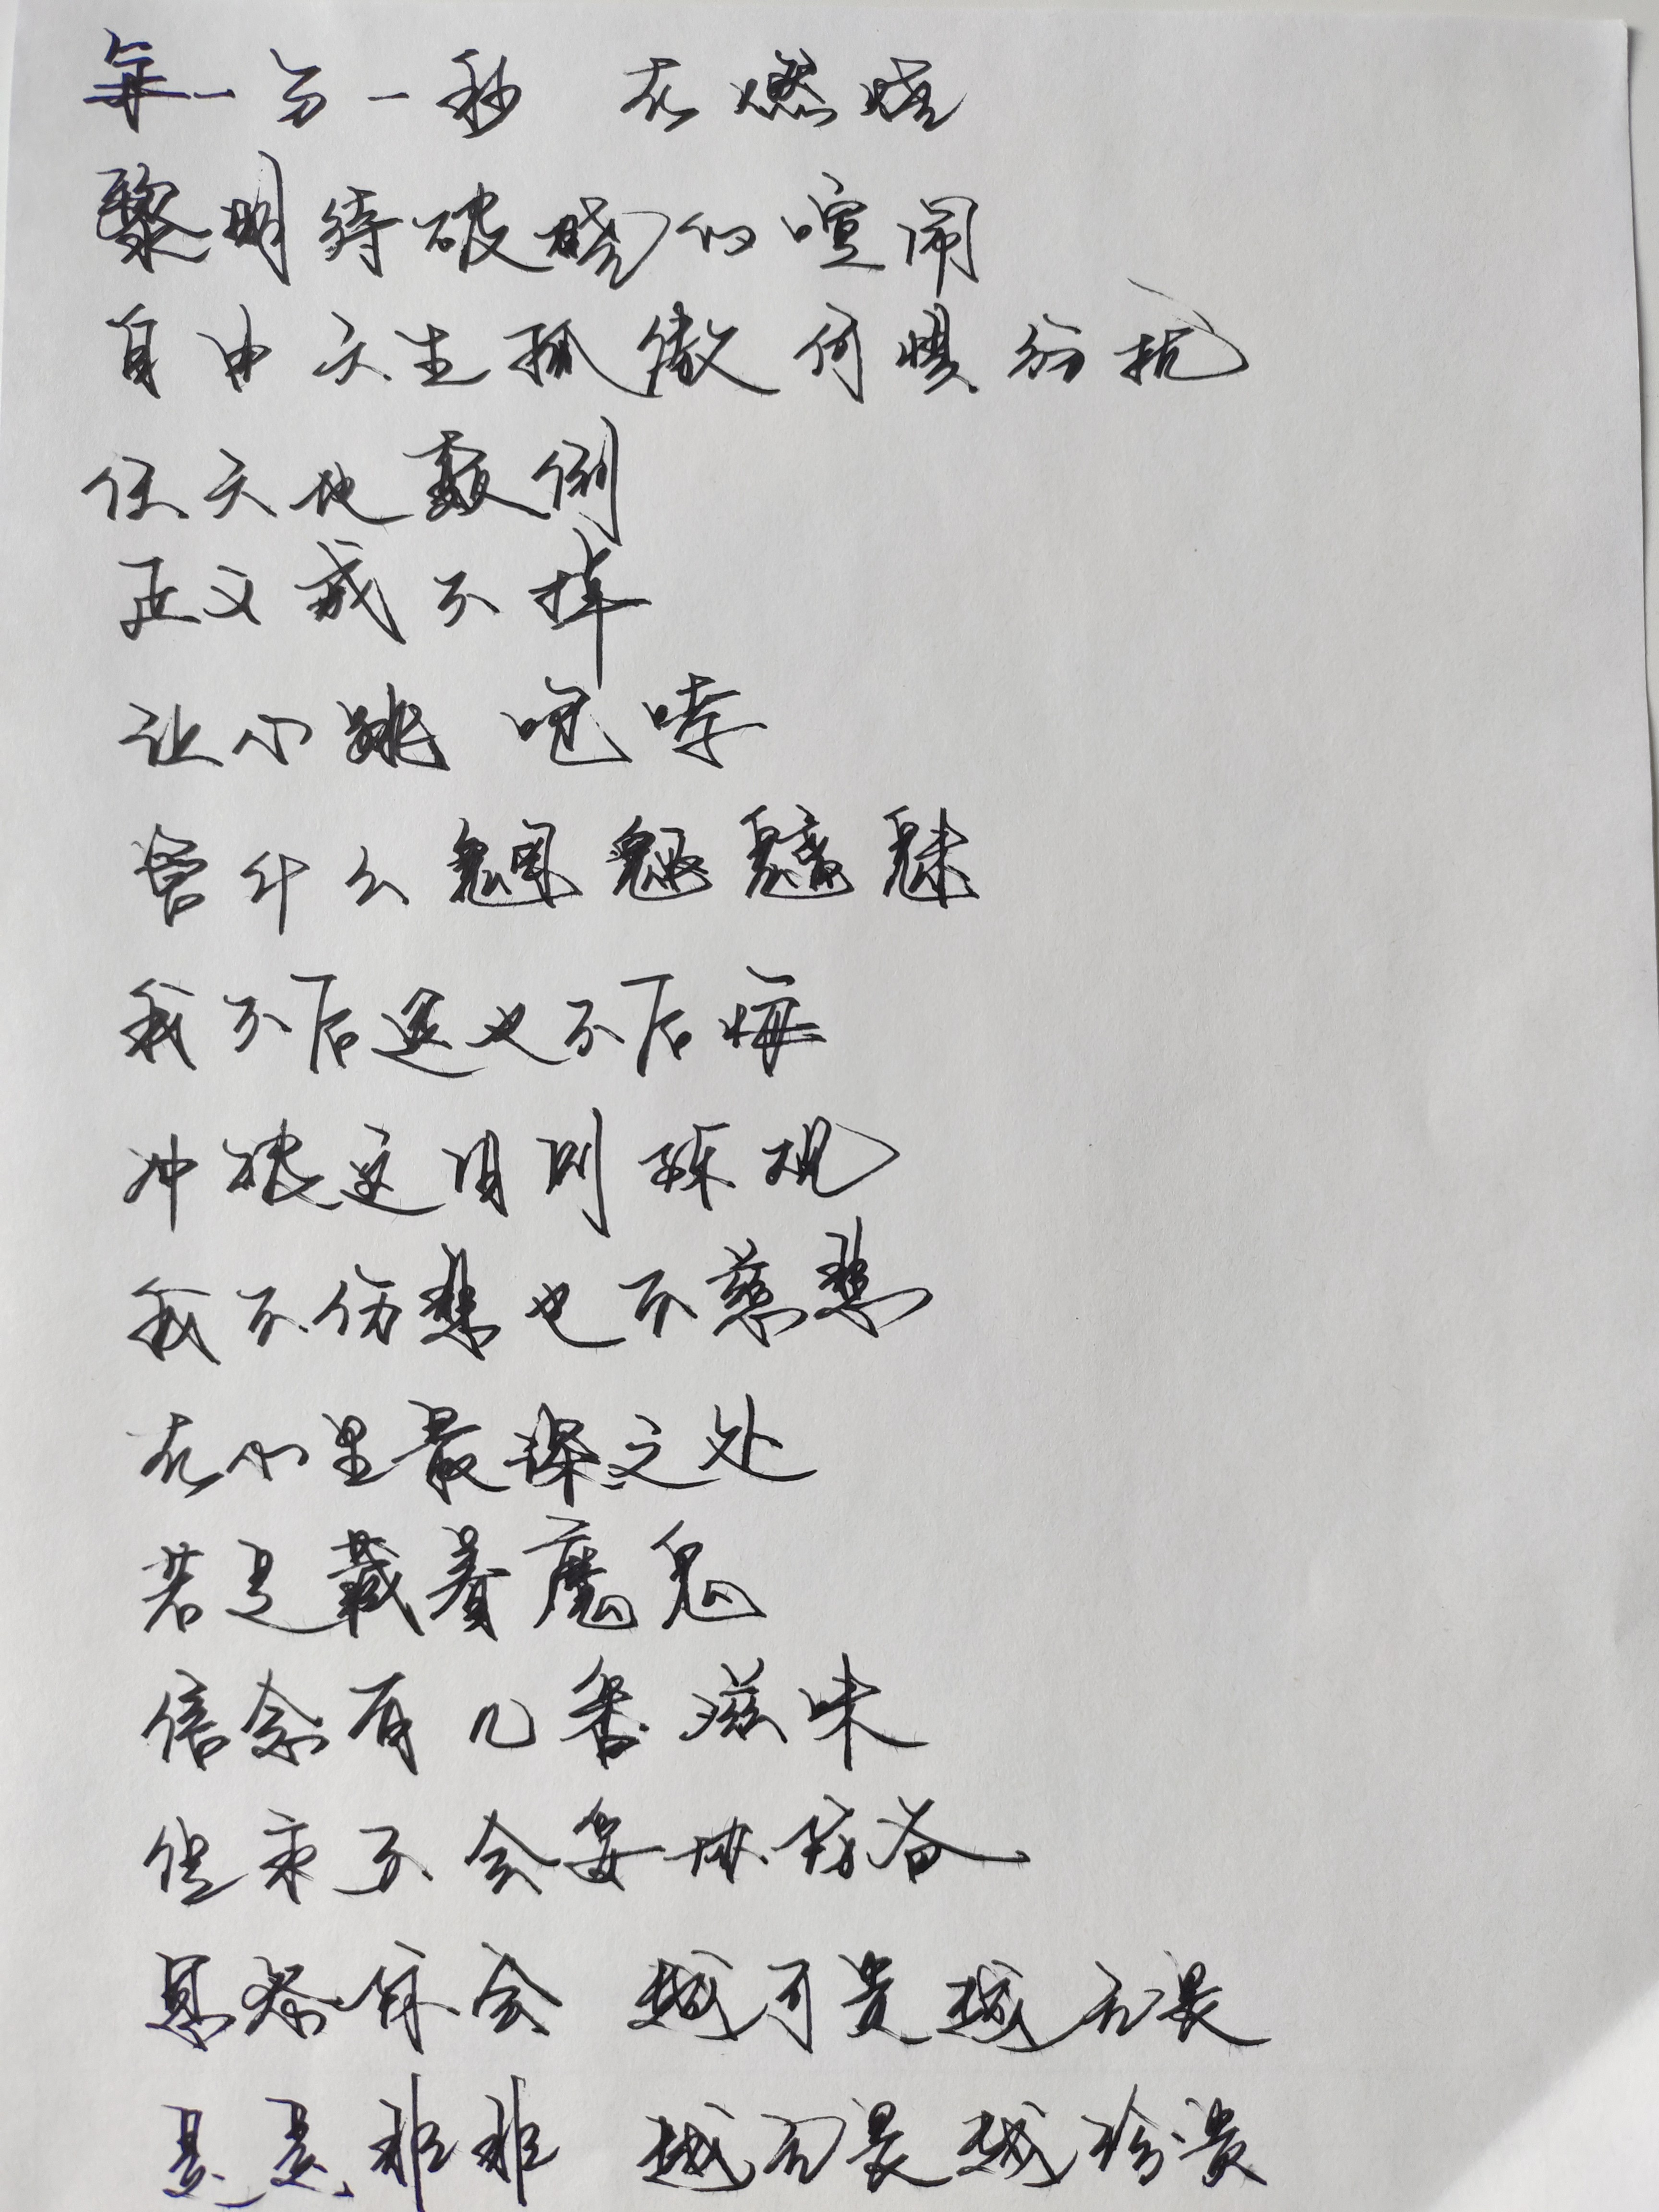 每一分一秒 在燃烧
黎明待破晓的喧闹
自由天生孤傲何惧纷扰
任天地颠倒
正义戒不掉
让心跳 咆哮
管什么魍魉魑魅
我不后退也不后悔
冲破这因则璀璨
我不伤悲也不慈悲
在心里最深之处
若是载着魔鬼
信念有几番滋味
但求不会妥协防备
恩怨体会 越可贵越无畏
是是非非 越无畏越珍贵